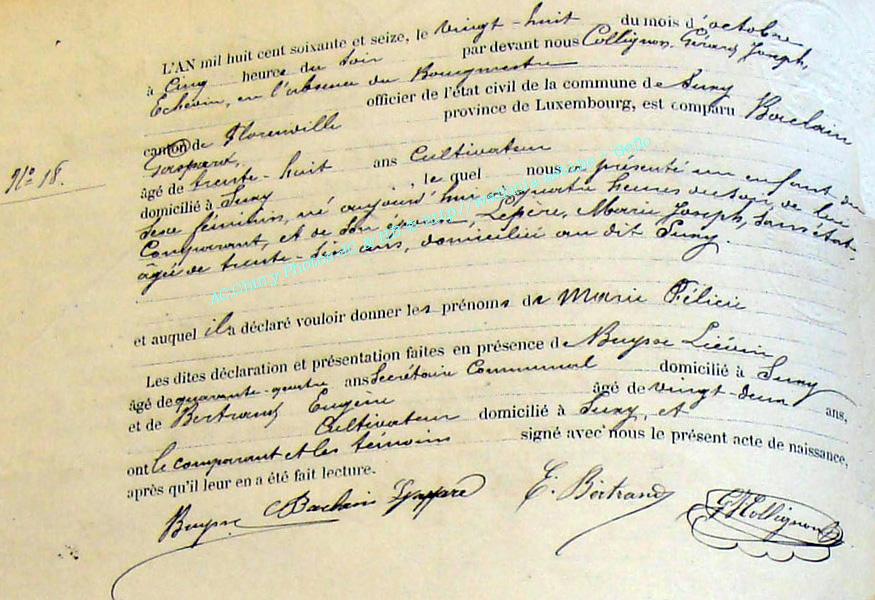 L'AN mil huit cent soixante et seize, le vingt-huit du mois d'octobre
à cinq heures du soir par devant nous Collignon, Gérard Joseph,
Echevin, en l'absence du Bourgmestre officier de l'état civil de la commune de Suny
canton de Florenville province de Luxembourg, est comparu Baclain
Gaspard,
âgé de trente-huit ans Cultivateur
Nº 18.
domicilié à Suny , le quel nous a présenté un enfant du
sexe féminin, né aujourd'hui à quatre heures du soir, de lui
Comparant, et de son épouse, Lepère, Marie Joseph, sans état,
âgée de trente-six ans, domiciliée au dit Suny.
AC Chiny Photos
et auquel il a déclaré vouloir donner les prénoms de Marie Félicie
Les dites déclaration et présentation faites en présence de Buysse Liévin
âgé de quarante-quatre ans Secrétaire Communal domicilié à Suny
et de Bertrand Eugène âgé de vingt-deux ans,
Cultivateur domicilié à Suny, et
ont le comparant et les témoins signé avec nous le présent acte de naissance,
après qu'il leur en a été fait lecture.
Buysse Baclain Gaspard E. Bertrand GJCollignon